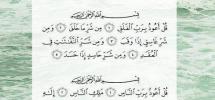 بِسْمِ اللَّهِ الرَّحْمَٰنِ الرَّحِيمِ
قُلْ أَعُوذُ بِرَبِّ الْفَلَقِ ١ مِن شَرِّ مَا خَلَقَ ٢ وَمِن
شَرِّ غَاسِقٍ إِذَا وَقَبَ ٣ وَمِن شَرِّ النَّفَّاثَاتِ فِي
الْعُقَدِ ٤ وَمِن شَرِّ حَاسِدٍ إِذَا حَسَدَ ٥
بِسْمِ اللَّهِ الرَّحْمَٰنِ الرَّحِيمِ
قُلْ أَعُوذُ بِرَبِّ النَّاسِ ١ مَلِكِ النَّاسِ ٢ إِلَٰهِ